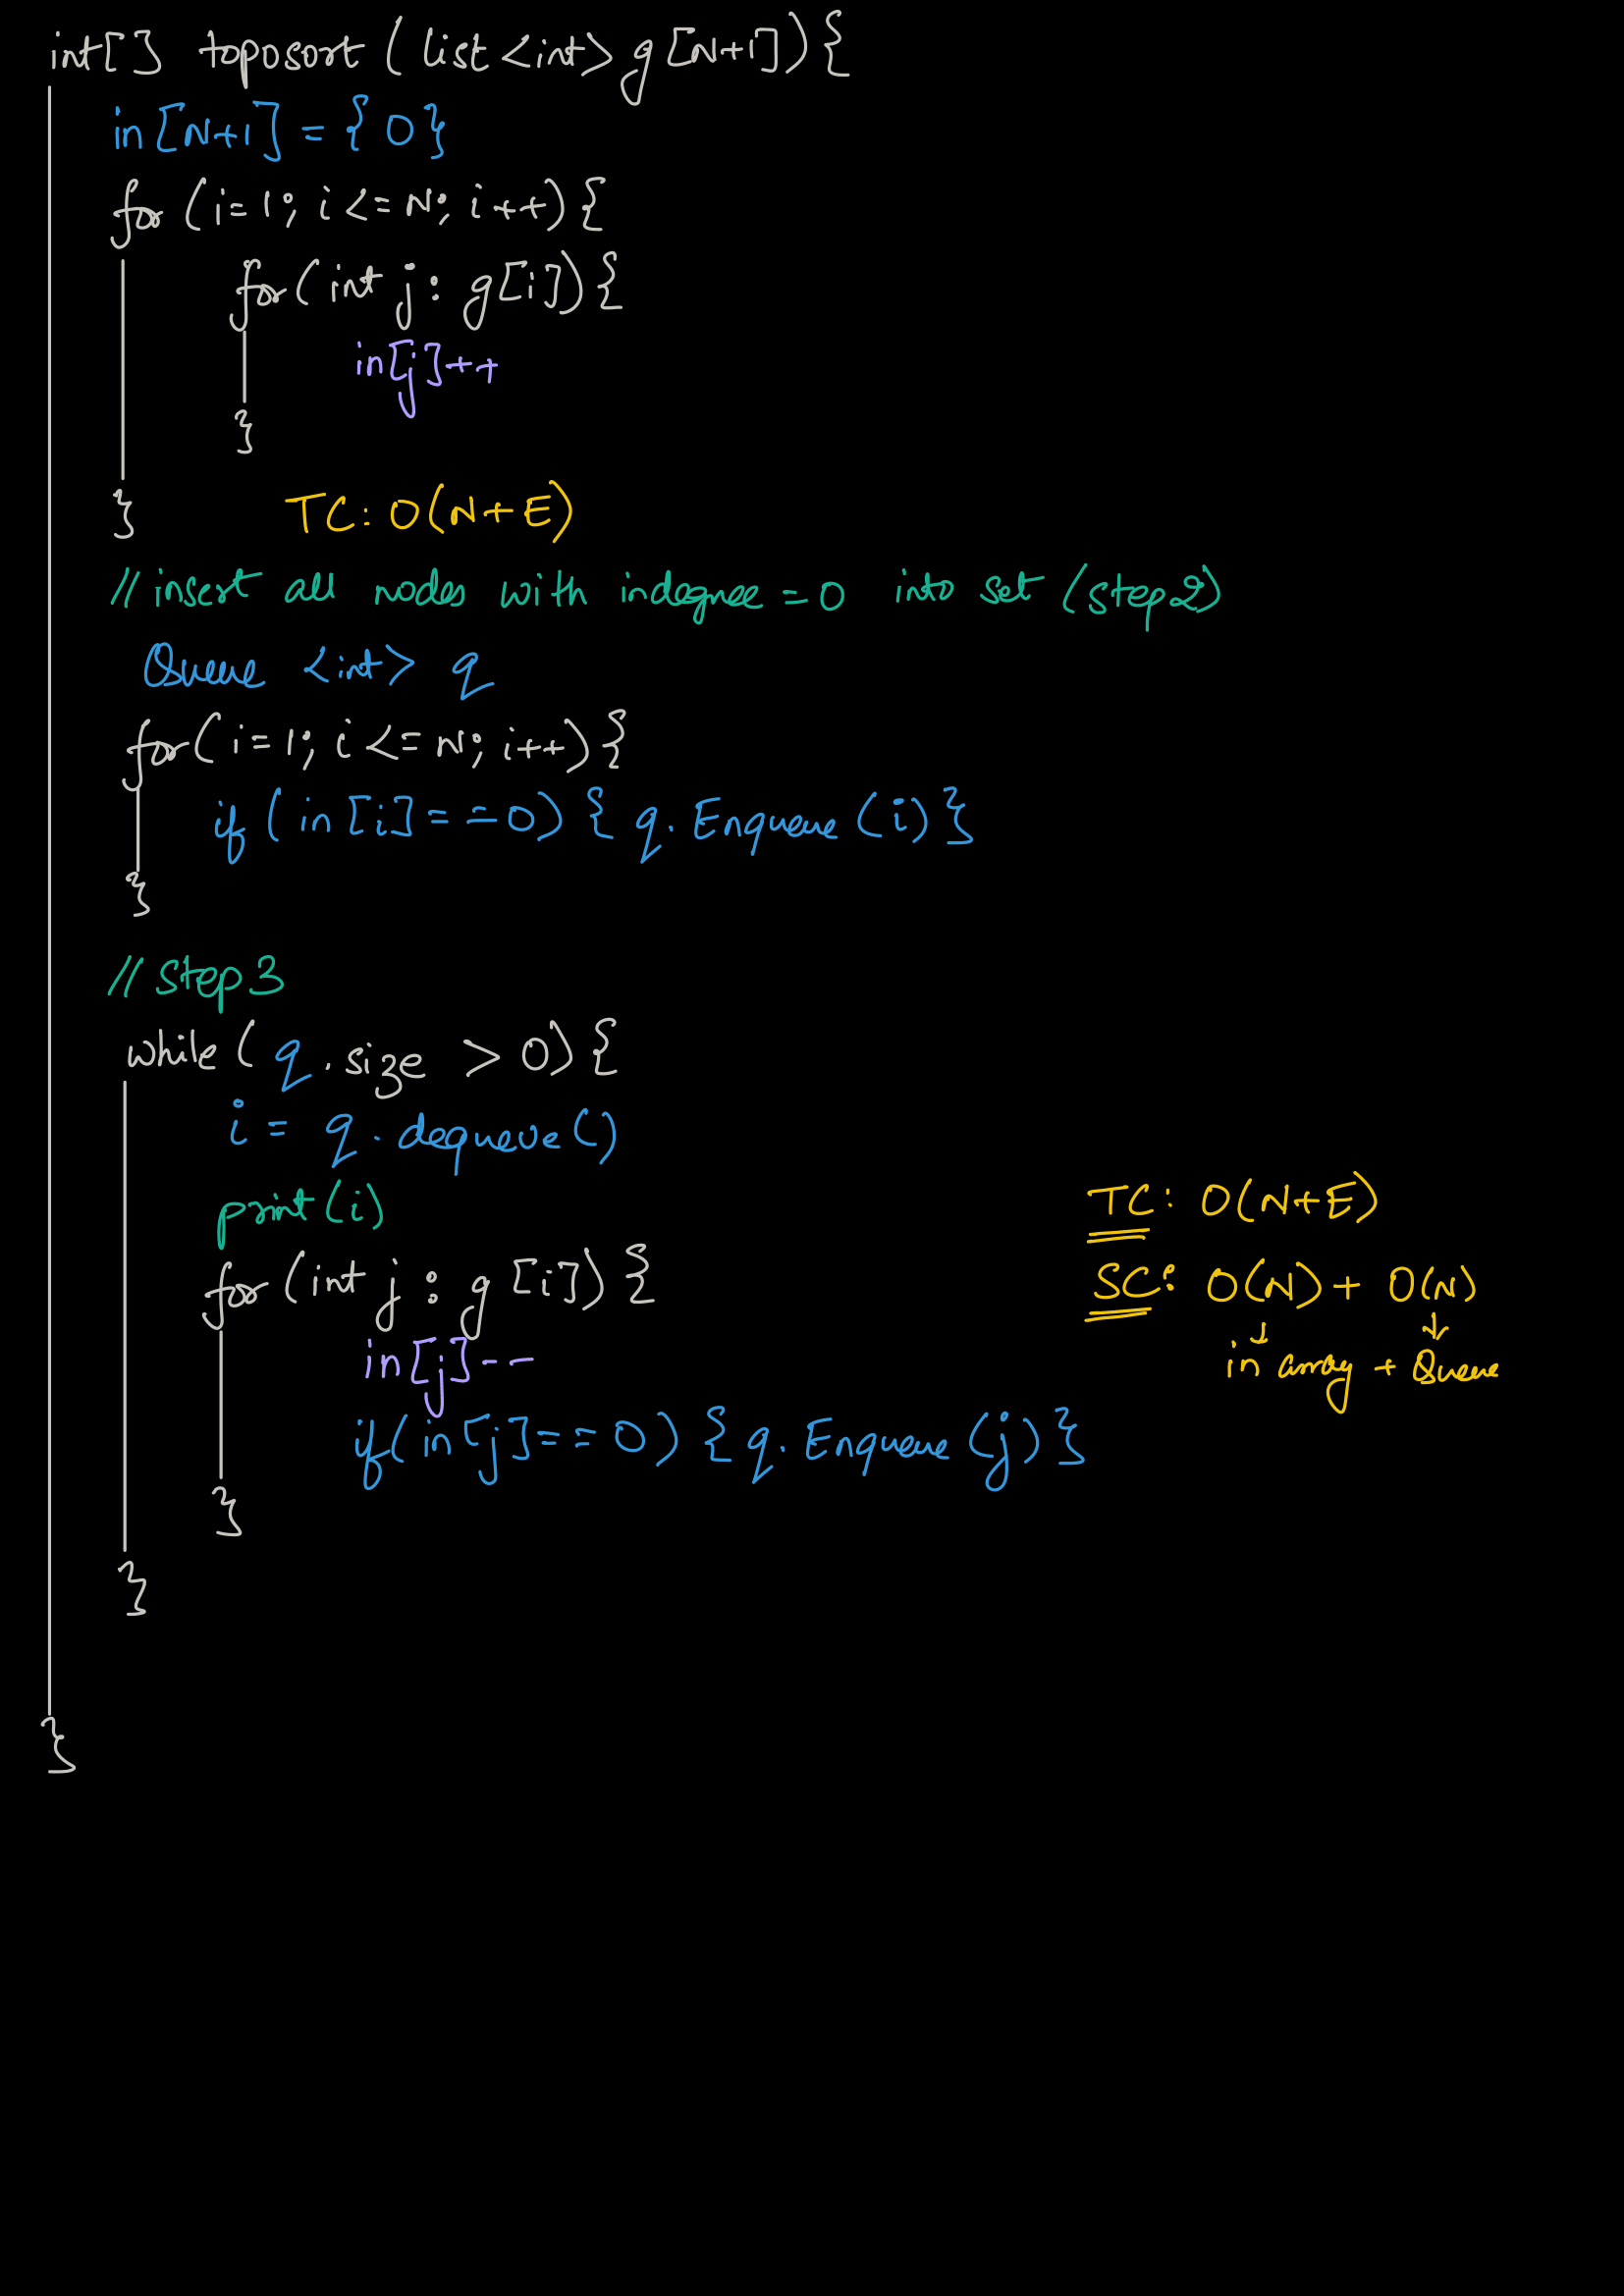 int[] toposort (list <int> g [N+1]){
in [N+1] = { 0 }
for (i=1; i <= N; i++){
for (int j : g[i]){
in[j]++
}
}
TC: O(N+E)
// insert all nodes with indegree = 0 into set (step 2)
Queue <int> q
for (i=1; i <= N; i++){
if (in [i] == 0) { q. Enqueue (i) }
}
// step 3
while ( q . size > 0) {
i = q . dequeue ()
print (i)
for (int j : g [i]) {
in [j] --
if (in [j] == 0) { q. Enqueue (j) }
}
}
}
TC: O(N+E)
SC: O(N) + O(N)
↓ ↓
in array + Queue